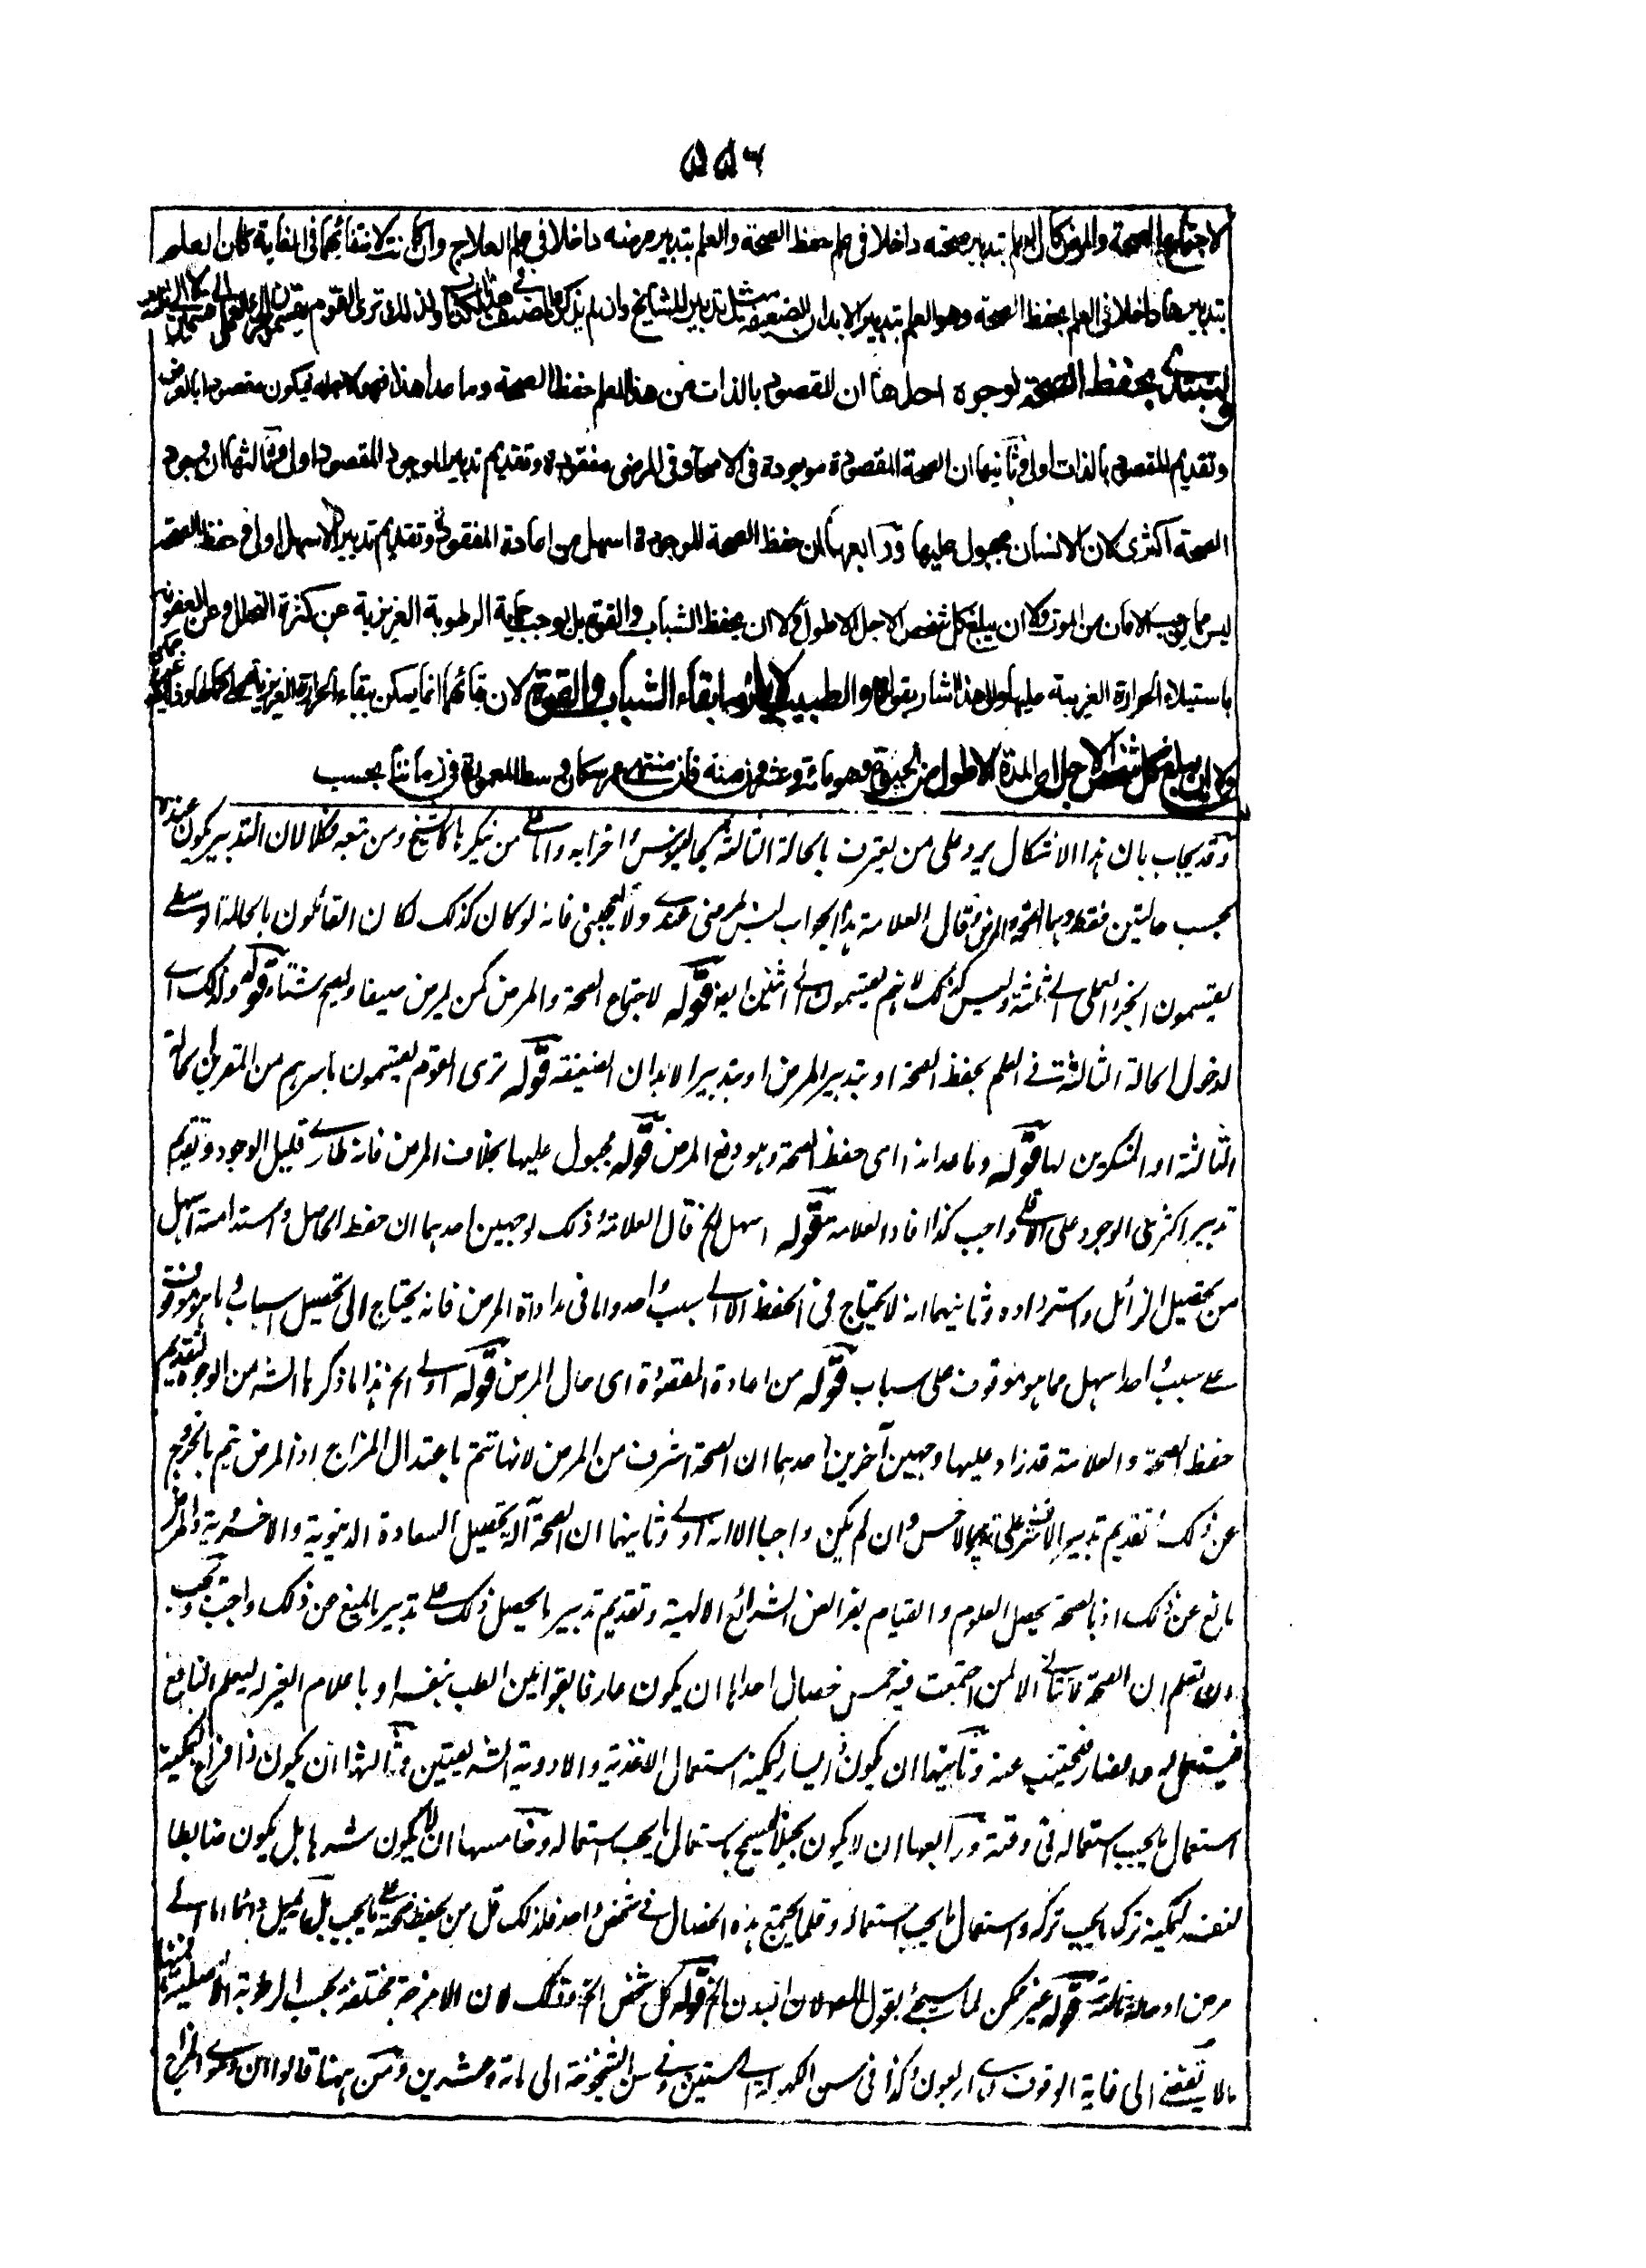 ۵۵۶
لاجتماع الصحة والمرض كان العلم بتدبير صحته داخلا فى علم حفظ الصحة والعلم بتدبير مرضه داخلا فى علم العلاج وان كانت لانتفائهما فى الغاية كان العلم
بتدبيرها داخلا فى العلم بحفظ الصحة وهو العلم بتدبير الابدان الضعيفة مثل تدبير المشايخ وان لم يذكره المصنف ولذلك ترى القوم يقسمون
ولنبتدئ بحفظ الصحة لوجوه احدها ان المقصود بالذات من هذا العلم حفظ الصحة وما عدا هذا فهو لاجله فيكون مقصودا بالعرض
وتقديم المقصود بالذات اولى وثانيها ان الصحة المقصودة موجودة فى الاصحاء وفى المرضى مفقودة وتقديم تدبير الموجود المقصود اولى وثالثها ان وجود
الصحة اكثرى لان الانسان مجبول عليها ورابعها ان حفظ الصحة الموجودة اسهل من اعادة المفقودة وتقديم تدبير الاسهل اولى وحفظ الصحة
ليس مما يوجب الامان من الموت ولا ان يبلغ كل شخص الاجل الاطول ولا ان يحفظ الشباب والقوة بل يوجب حماية الرطوبة الغريزية عن كثرة التحلل وعن العفونة
باستيلاء الحرارة الغريبة عليها والى هذا اشار بقوله والطبيب لا يلزمه ابقاء الشباب والقوة لان بقائهما انما يمكن ببقاء الحرارة الغريزية
ولا ان يبلغ كل شخص الاجل اى المدة الاطول من الحيوة وهو مائة وعشرون سنة فان منتهى عمر سكان وسط المعمورة فى زماننا بحسب
وقد يجاب بان هذا الاشكال يرد على من يعترف بالحالة الثالثة كجالينوس واحزابه واما على من ينكرها كالشيخ ومن تبعه فكلا لان التدبير يكون عنده
بحسب حالتين فقط وهما الصحة والمرض وقال العلامة هذا الجواب ليس بمرضى عندى ولا يعجبنى فانه لو كان كذلك لكان القائلون بالحالة الوسطى
يقسمون الجزء العملى الى ثلثة وليس كذلك لانهم يقسمون الى اثنين ايضا قوله لاجتماع الصحة والمرض كمن يمرض صيفا ويصح شتاء قوله ولذلك اى
لدخول الحالة الثالثة فى العلم بحفظ الصحة او بتدبير المرض او بتدبير الابدان الضعيفة قوله ترى القوم يقسمون باسرهم من المقرين بالحالة
الثالثة او المنكرين لها قوله وما عدا هذا اى حفظ الصحة وهو دفع المرض قوله مجبول عليها بخلاف المرض فانه طارى قليل الوجود وتقديم
تدبير اكثرى الوجود على الاقلى واجب كذا افاد العلامة قوله اسهل الخ قال العلامة وذلك لوجهين احدهما ان حفظ الحاصل واستدامته اسهل
من تحصيل الزائل واسترداده وثانيهما انه لا يحتاج فى الحفظ الا الى سبب واحد واما فى مداواة المرض فانه يحتاج الى تحصيل اسباب وما هو موقوف
على سبب واحد اسهل مما هو موقوف على اسباب قوله من اعادة المفقودة اى حال المرض قوله اولى الخ هذا ما ذكره الشه من الوجوه لتقديم
حفظ الصحة والعلامة قد زاد عليها وجهين آخرين احدهما ان الصحة اشرف من المرض لانها تتم باعتدال المزاج اذ المرض يتم بالخروج
عن ذلك وتقديم تدبير الاشرف على تدبير الاخس وان لم يكن واجبا الا انه اولى وثانيهما ان الصحة آلة لتحصيل السعادة الدنيوية والاخروية والمرض
مانع عن ذلك اذ بالصحة يحصل العلوم والقيام بفرائض الشرائع الالهية وتقديم تدبير ما يحصل ذلك على تدبير ما يمنع من ذلك واجب ويجب
ان تعلم ان الصحة لا تتأتى الا لمن اجتمعت فيه خمس خصال احدها ان يكون عارفا بقوانين الطب بنفسه او باعلام الغير له ليعلم النافع
فيستعمله والضار فيجتنب عنه وثانيها ان يكون ذا يسار ليمكنه استعمال الاغذية والادوية الشريفتين وثالثها ان يكون ذا فراغ ليمكنه
استعمال ما يجب استعماله فى وقته ورابعها ان لا يكون بخيلا ليسمح باستعمال ما يجب استعماله وخامسها ان لا يكون شرها بل يكون ضابطا
لنفسه ليمكنه ترك ما يجب تركه واستعمال ما يجب استعماله وقلما يجتمع هذه الخصال فى شخص واحد فلذلك قل من يحفظ صحته على ما يجب بل يميل دائما اما الى
مرض او حالة ثالثة قوله غير ممكن لما سيجئ بقول المصه لان البدن الخ قوله كل شخص الخ وذلك لان الامزجة مختلفة بحسب الرطوبة الاصلية
مالا يقتضى الى غاية الوقوف وهى اربعون وكذا فى سن الكهولة الى الستين وفى سن الشيخوخة الى مائة وعشرين ومن ههنا قالوا ان